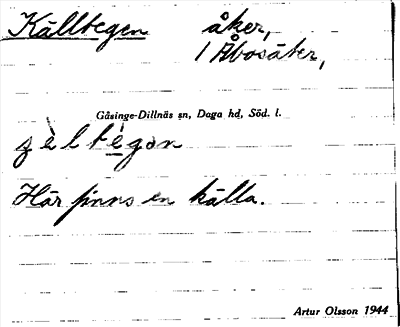 Källtegen åker,
1 Åbosäter,
Gåsinge-Dillnäs sn, Daga hd, Söd. l.
Här finns en källa.
Artur Olsson 1944